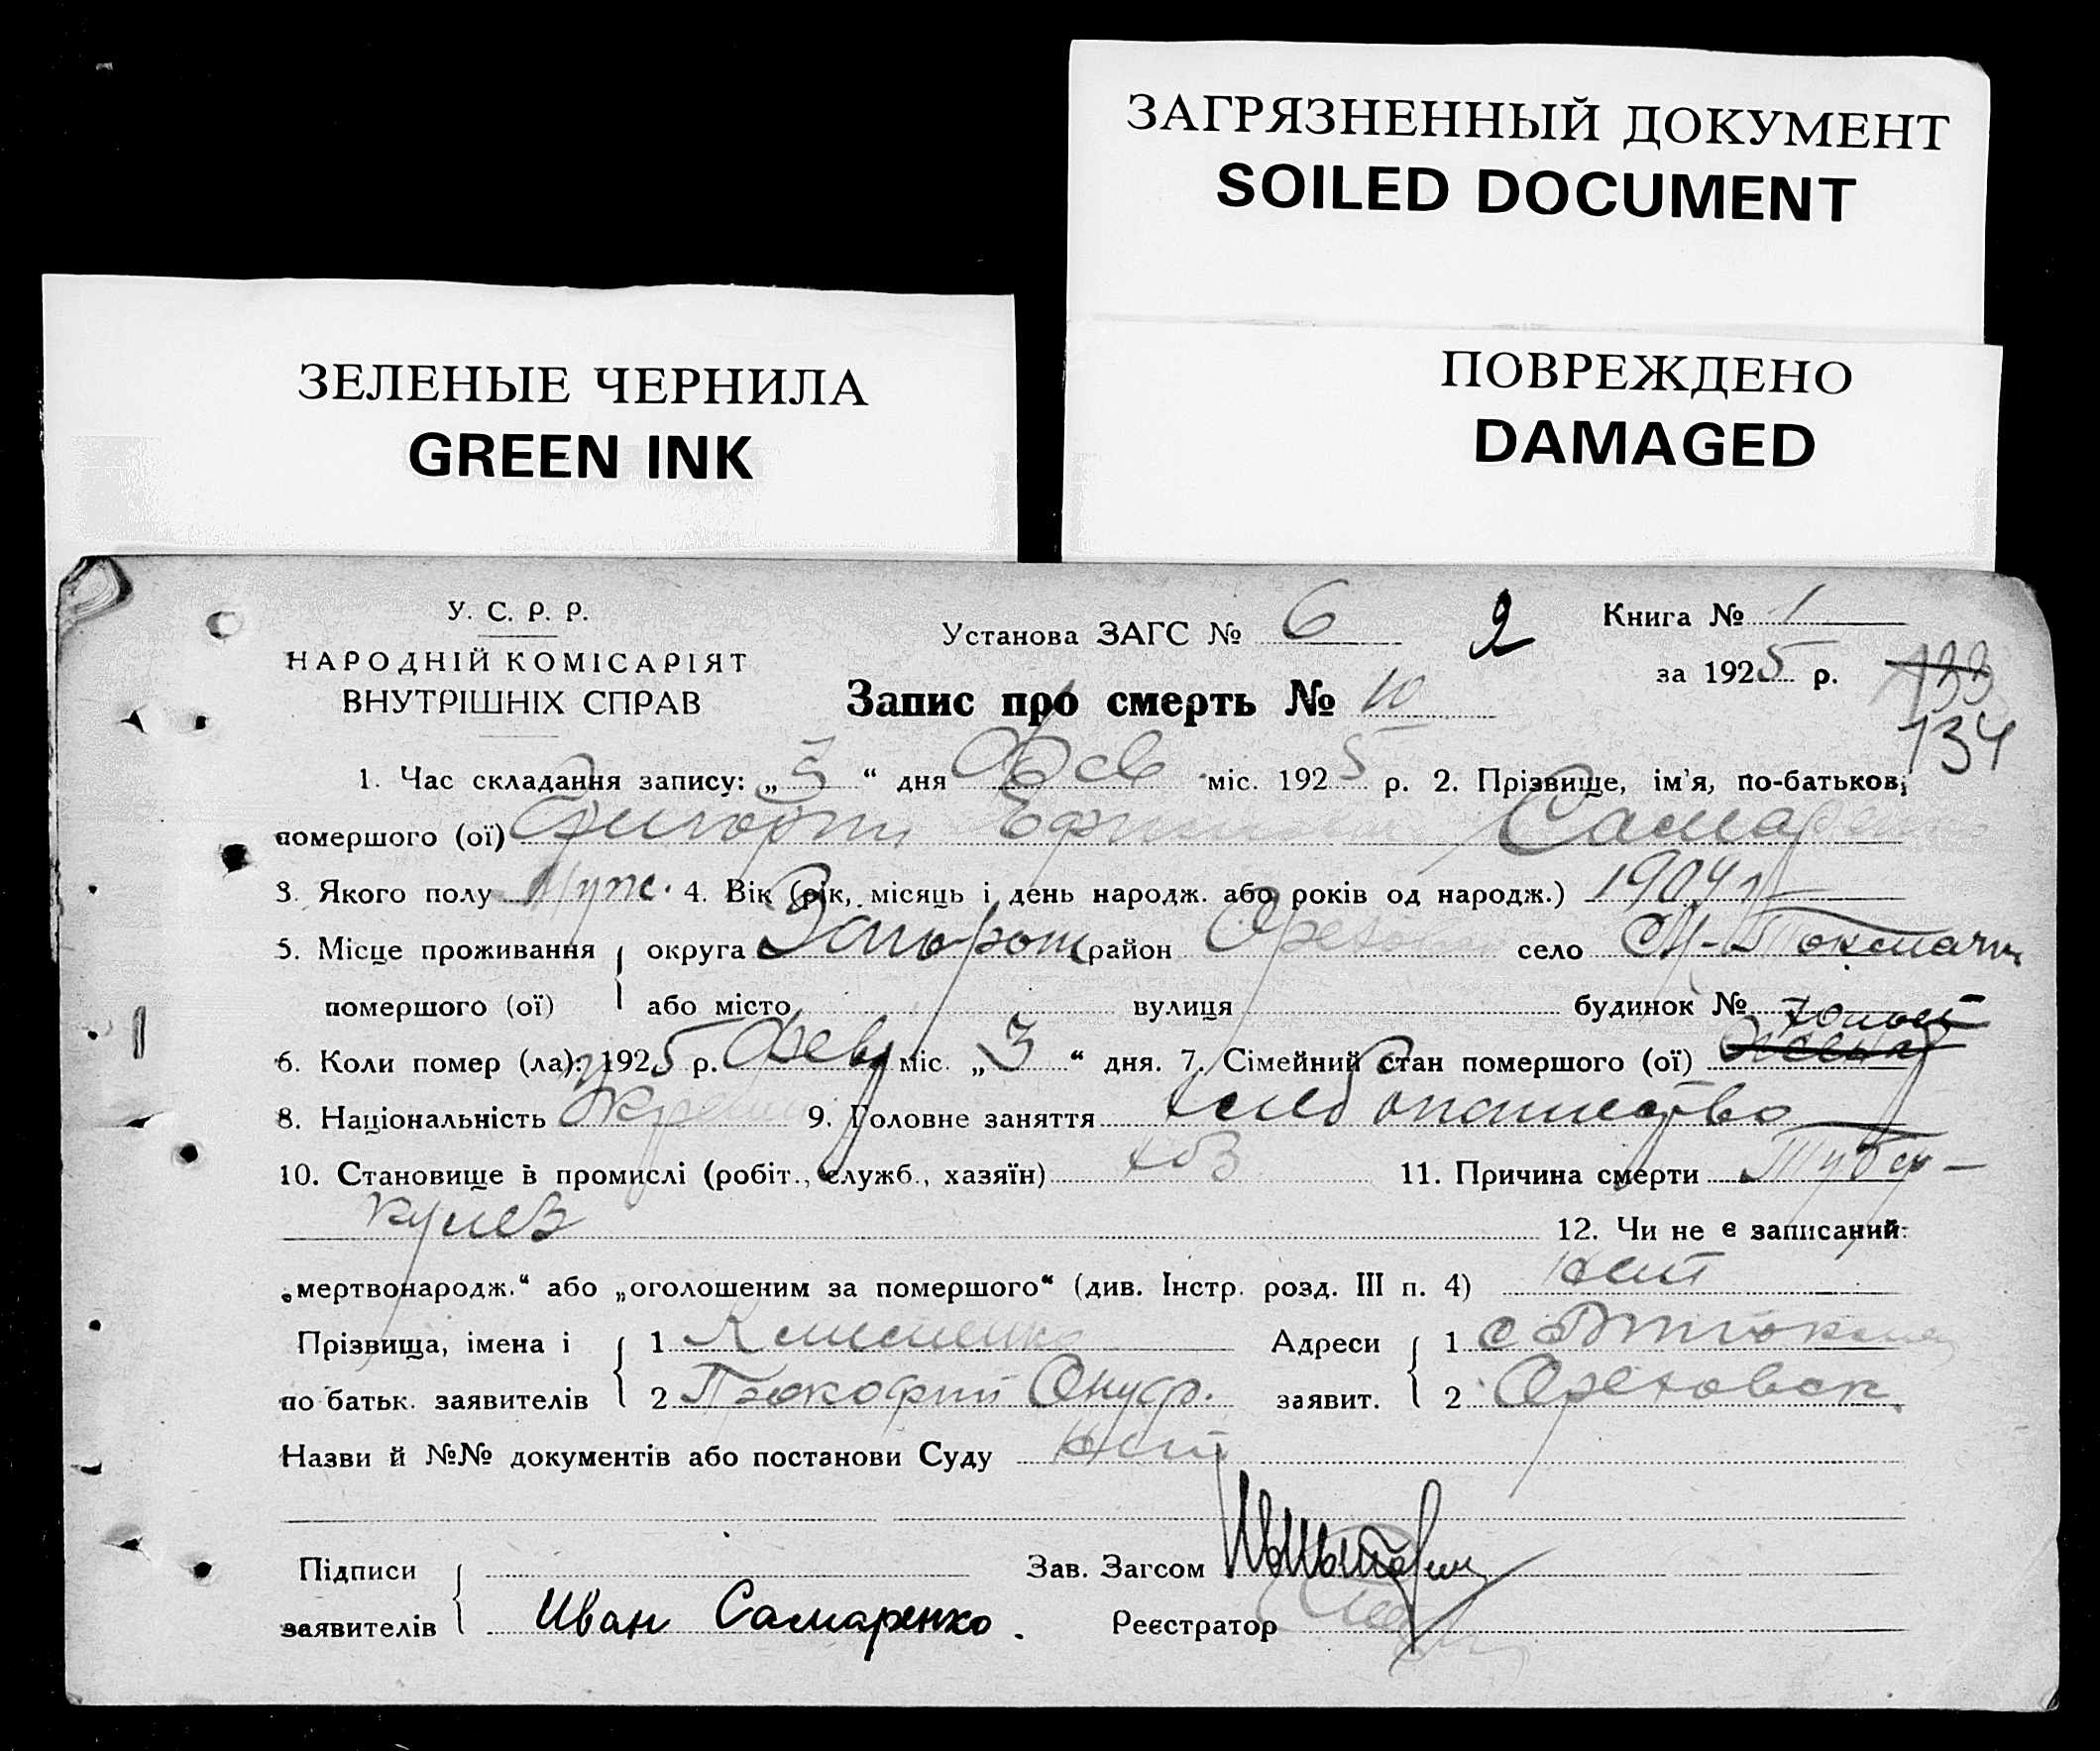 ЗАГРЯЗНЕННЫЙ ДОКУМЕНТ
SOILED DOCUMENT
ЗЕЛЕНЫЕ ЧЕРНИЛА
GREEN INK
ПОВРЕЖДЕНО
DAMAGED
У. С. Р. Р.
НАРОДНІЙ КОМІСАРІЯТ
ВНУТРІШНІХ СПРАВ
Установа ЗАГС № 6
2
Книга № 1
за 1925 р.
133
Запис про смерть № 10
134
1. Час складання запису: „3“ дня Фев міс. 1925 р. 2. Прізвище, ім'я, по-батькові
помершого (ої) Григорий Самаренко
3. Якого полу Муж. 4. Вік (рік, місяць і день народж. або років од народж.) 1904 г
5. Місце проживання округа Запорож район Орехов село М-Токмачк
помершого (ої) або місто вулиця будинок №
6. Коли помер (ла): 1925 р. Фев міс. „3“ дня. 7. Сімейний стан помершого (ої)
8. Національність 9. Головне заняття хлебопашество
10. Становище в промислі (робіт., служб., хазяїн) хоз 11. Причина смерти Тубер-
кулез
12. Чи не є записаний:
„мертвонародж.“ або „оголошеним за помершого“ (див. Інстр. розд. III п. 4) нет
Прізвища, імена і 1 Клименко Адреси 1 с
по батьк. заявителів 2 Прокофий Онуф. заявит. 2 Ореховск.
Назви й №№ документів або постанови Суду нет
Підписи Зав. Загсом
заявителів Иван Самаренко. Реєстратор